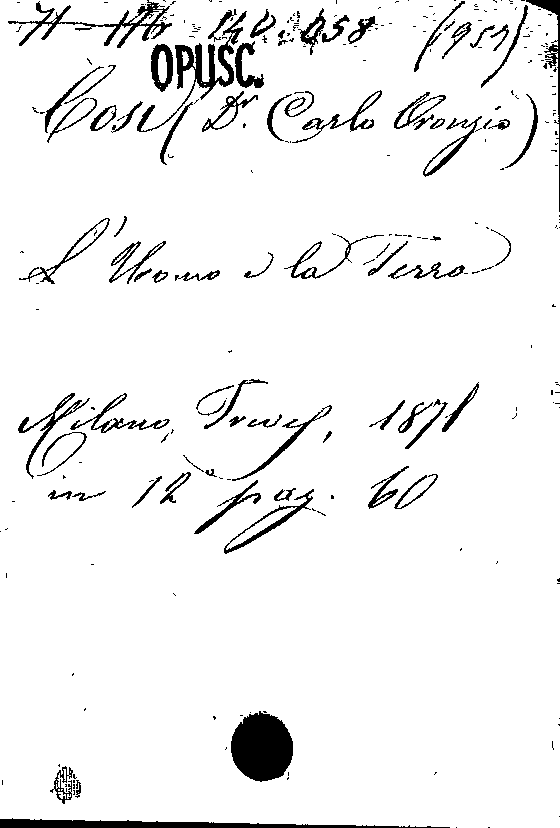 71-176 140.058 (1959)
OPUSC.
Cosi (Dr. Carlo Oronzio)
L'Uomo e la Terra
Milano, Treves, 1871
in 12° pag. 60